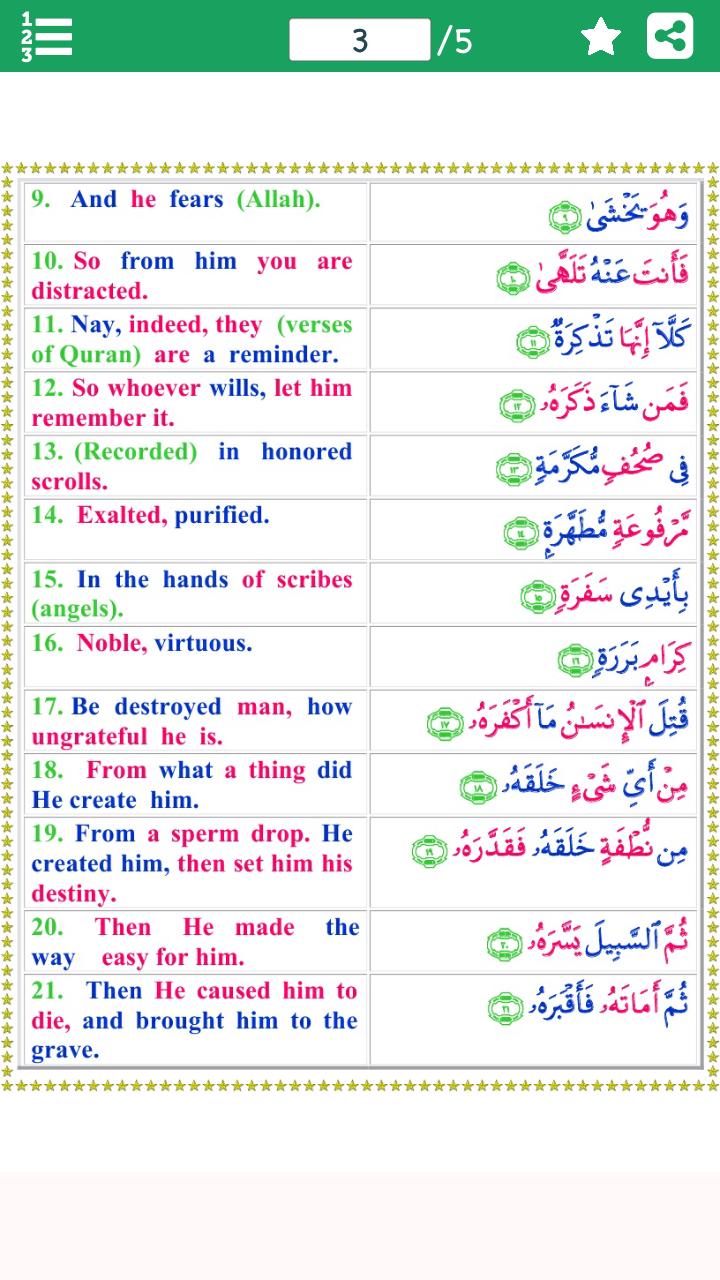 1
2
3
3 /5
9. And he fears (Allah).
وَهُوَ يَخْشَىٰ ٩
10. So from him you are
distracted.
فَأَنتَ عَنْهُ تَلَهَّىٰ ١٠
11. Nay, indeed, they (verses
of Quran) are a reminder.
كَلَّآ إِنَّهَا تَذْكِرَةٌ ١١
12. So whoever wills, let him
remember it.
فَمَن شَآءَ ذَكَرَهُۥ ١٢
13. (Recorded) in honored
scrolls.
فِى صُحُفٍ مُّكَرَّمَةٍ ١٣
14. Exalted, purified.
مَّرْفُوعَةٍ مُّطَهَّرَةٍۭ ١٤
15. In the hands of scribes
(angels).
بِأَيْدِى سَفَرَةٍ ١٥
16. Noble, virtuous.
كِرَامٍۭ بَرَرَةٍ ١٦
17. Be destroyed man, how
ungrateful he is.
قُتِلَ ٱلْإِنسَـٰنُ مَآ أَكْفَرَهُۥ ١٧
18. From what a thing did
He create him.
مِنْ أَىِّ شَىْءٍ خَلَقَهُۥ ١٨
19. From a sperm drop. He
created him, then set him his
destiny.
مِن نُّطْفَةٍ خَلَقَهُۥ فَقَدَّرَهُۥ ١٩
20. Then He made the
way easy for him.
ثُمَّ ٱلسَّبِيلَ يَسَّرَهُۥ ٢٠
21. Then He caused him to
die, and brought him to the
grave.
ثُمَّ أَمَاتَهُۥ فَأَقْبَرَهُۥ ٢١